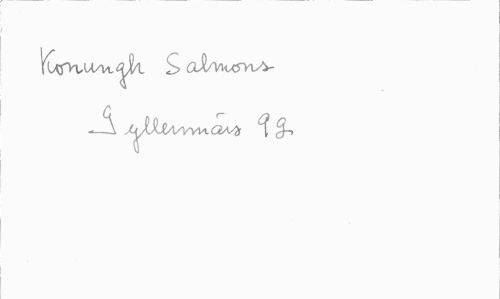 Konungh Salmons
Gyllenmärs 99.